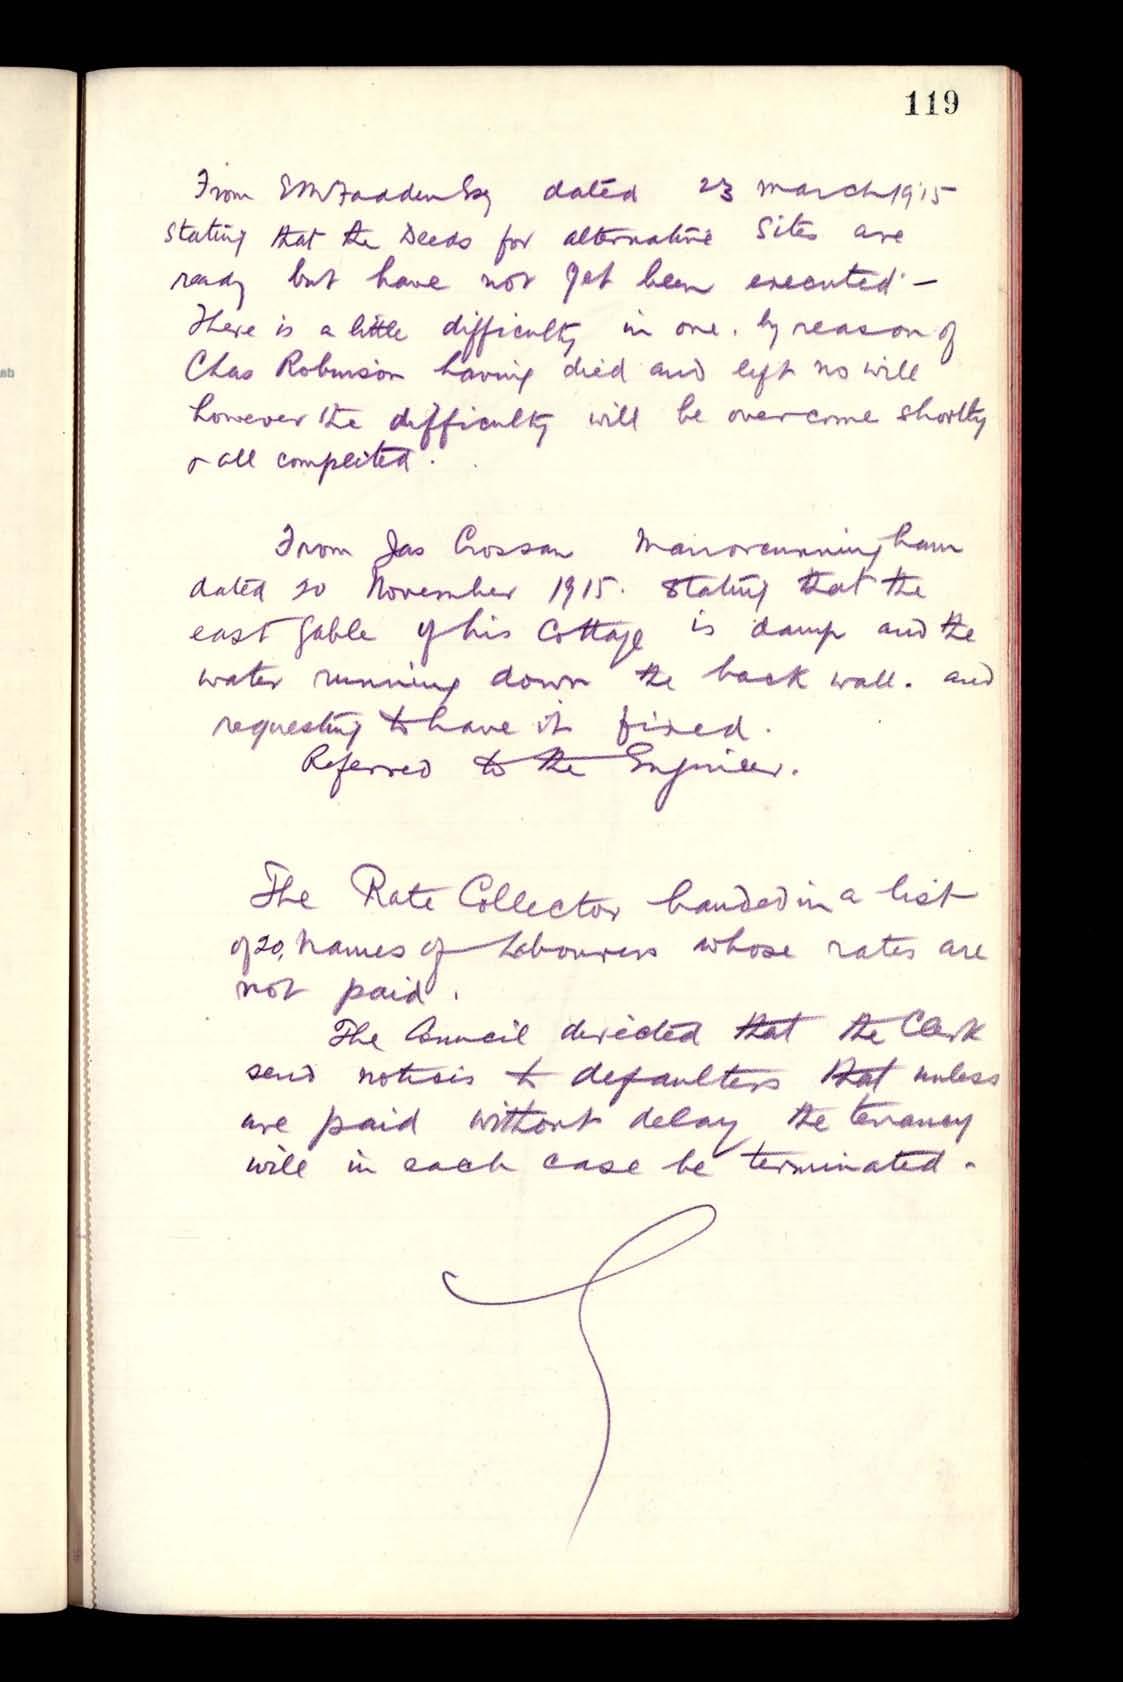 119
From E McFadden Esq dated 23 March 1915
stating that the Deeds for alternative Sites are
ready but have not yet been executed —
There is a little difficulty in one. by reason of
Chas Robinson having died and left no will
however the difficulty will be overcome shortly
& all compleited.
From Jas Crossan Manorcunningham
dated 20 November 1915. Stating that the
east Gable of his Cottage is damp and the
water running down the back wall. and
requesting to have it fixed.
Referred to the Engineer.
The Rate Collector handed in a list
of 20, names of Labourers whose rates are
not paid.
The Council directed that the Clerk
send notisis to defaulters that unless
are paid without delay the tenancy
will in each case be terminated.